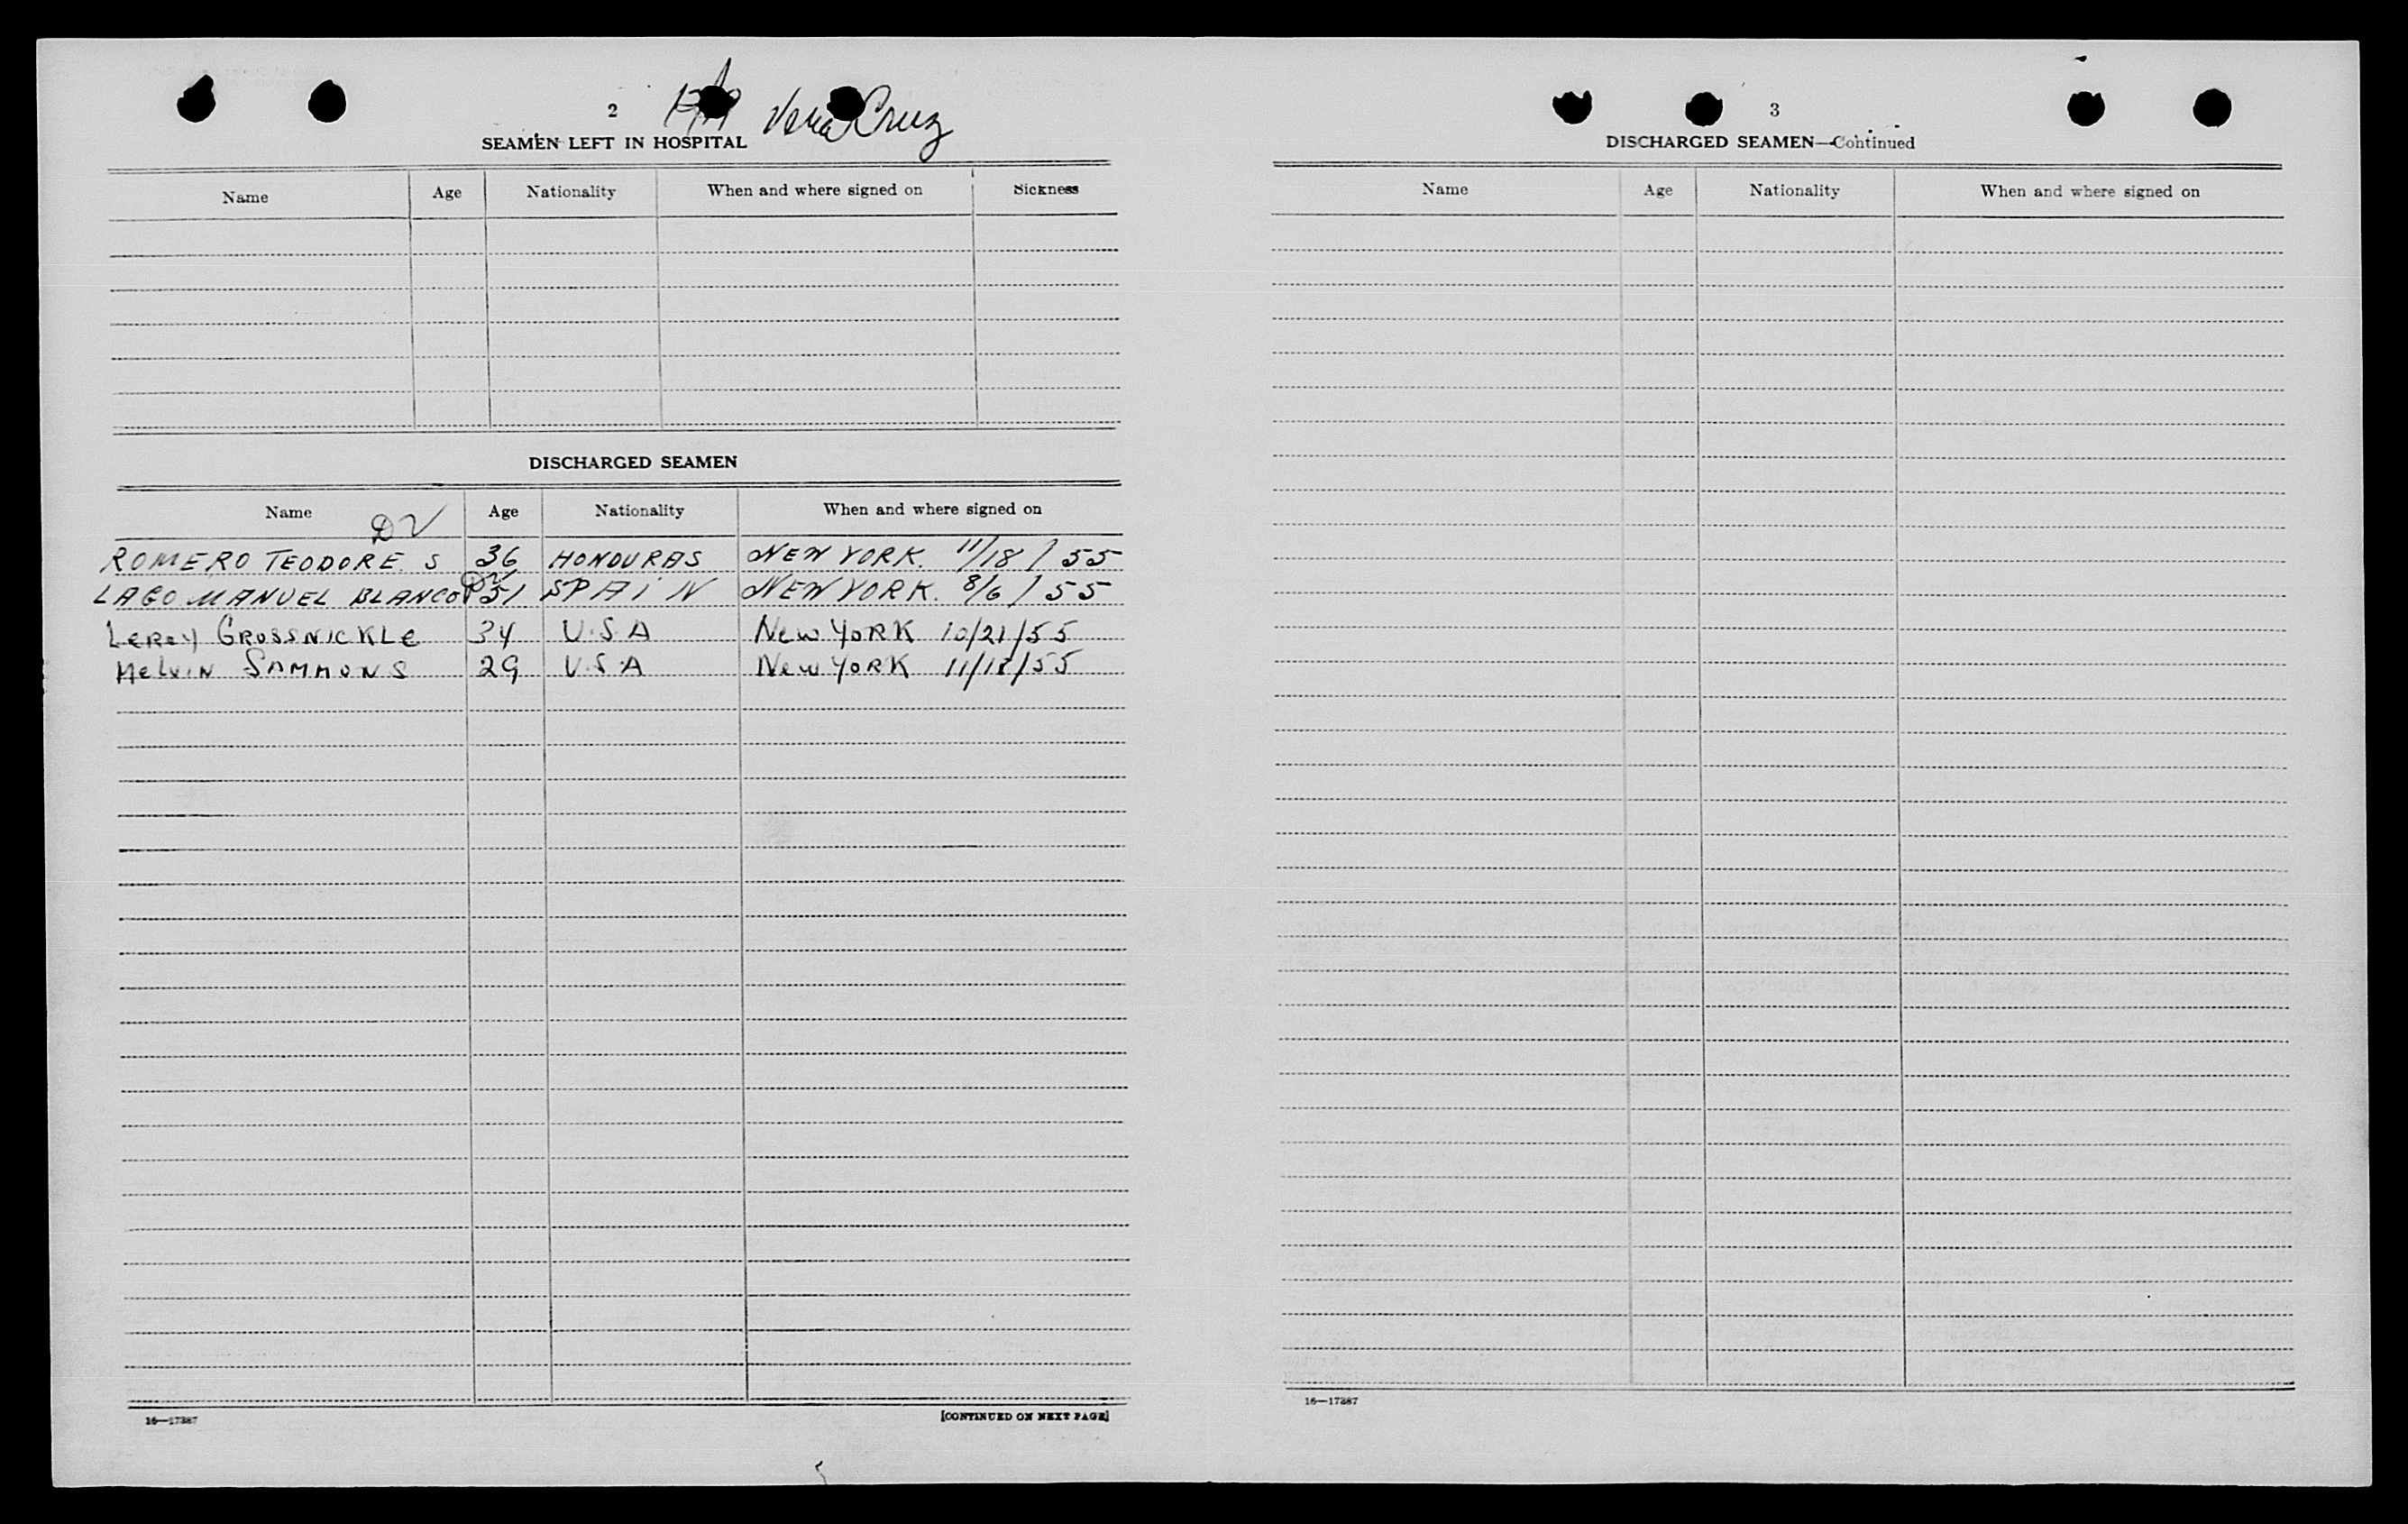 2 Vera Cruz
SEAMEN LEFT IN HOSPITAL
Name Age Nationality When and where signed on Sickness
DISCHARGED SEAMEN
Name Age Nationality When and where signed on
DV
ROMERO TEODORE. S 36 HONDURAS NEW YORK. 11/18/55
DV
LAGO MANUEL BLANCO 51 SPAiN NEW YORK. 8/6/55
LeRoy GROSSNICKLe 34 U.S.A New YORK 10/21/55
MelviN SAMMONS 29 U.S.A New YORK 11/18/55
16—17387 [CONTINUED ON NEXT PAGE]
3
DISCHARGED SEAMEN—Continued
Name Age Nationality When and where signed on
16—17387